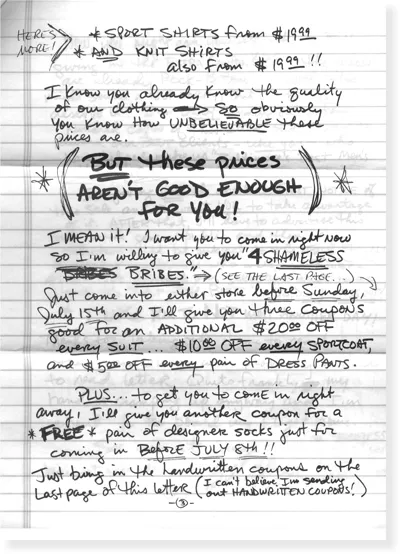 HERE'S MORE!
* SPORT SHIRTS from $19.99
* AND KNIT SHIRTS
also from $19.99!!
I know you already know the quality
of our clothing → So obviously
you know how UNBELIEVABLE these
prices are.
* (BUT these prices
AREN'T GOOD ENOUGH
FOR YOU!) *
I MEAN it! I want you to come in right now
so I'm willing to give you "4 SHAMELESS
BRIBES BRIBES." → (SEE THE LAST PAGE...)
Just come into either store before Sunday,
July 15th and I'll give you three coupons
good for an ADDITIONAL $20.00 OFF
every SUIT... $10.00 OFF every SPORTCOAT,
and $5.00 OFF every pair of DRESS PANTS.
PLUS... to get you to come in right
away, I'll give you another coupon for a
*FREE* pair of designer socks just for
coming in BEFORE JULY 8th!!
Just bring in the handwritten coupons on the
last page of this letter (I can't believe I'm sending
out HANDWRITTEN COUPONS!)
-3-